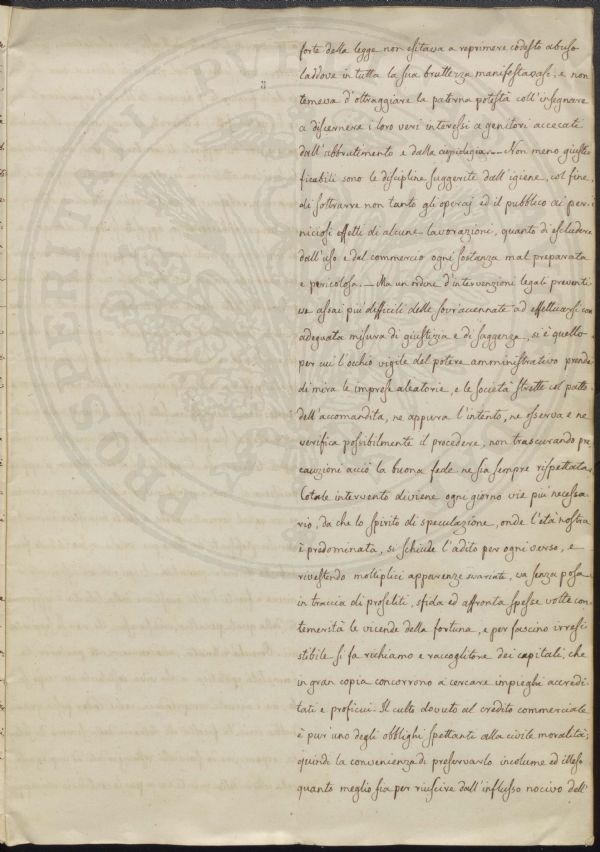 forte della legge non esitava a reprimere codesto abuso
laddove in tutta la sua bruttezza manifestavasi, e non
temeva d'oltraggiare la paterna potestà coll'insegnare
a discernere i loro veri interessi a genitori accecati
dall'abbrutimento e dalla cupidigia. — Non meno giusti
ficabili sono le discipline suggerite dall'igiene, col fine
di sottrarre non tanto gli operaj ed il pubblico ai per
niciosi effetti di alcune lavorazioni, quanto di escludere
dall'uso e dal commercio ogni sostanza mal preparata
e pericolosa. — Ma un ordine d'interventi legali preventi
ve assai più difficili delle sovraccennate ad effettuarsi con
adeguata misura di giustizia e di saggezza, si è quello
per cui l'occhio vigile del potere amministrativo prende
di mira le imprese aleatorie, e le società strette col patto
dell'accomandita, ne appura l'intento, ne osserva e ne
verifica possibilmente il procedere, non trascurando pre
cauzioni acciò la buona fede ne sia sempre rispettata.
Cotale intervento diviene ogni giorno vie più necessa
rio, da che lo spirito di speculazione, onde l'età nostra
è predominata, si schiude l'adito per ogni verso, e
rivestendo moltiplici apparenze svariate, va senza posa
in traccia di proseliti, sfida ed affronta spesse volte con
temerità le vicende della fortuna, e per fascino irresi
stibile si fa richiamo e raccoglitore dei capitali, che
in gran copia concorrono a cercare impieghi accredi
tati e proficui. Il culto dovuto al credito commerciale
è pur uno degli obblighi spettanti alla civile moralità;
quindi la convenienza di preservarlo incolume ed illeso
quanto meglio sia per riuscire dall'influsso nocivo dell'
PROSPERITATI PVBLICAE